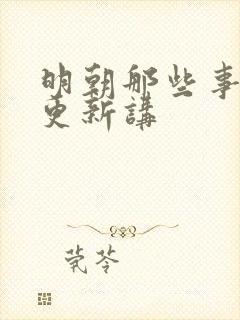 明朝那些事
更新講